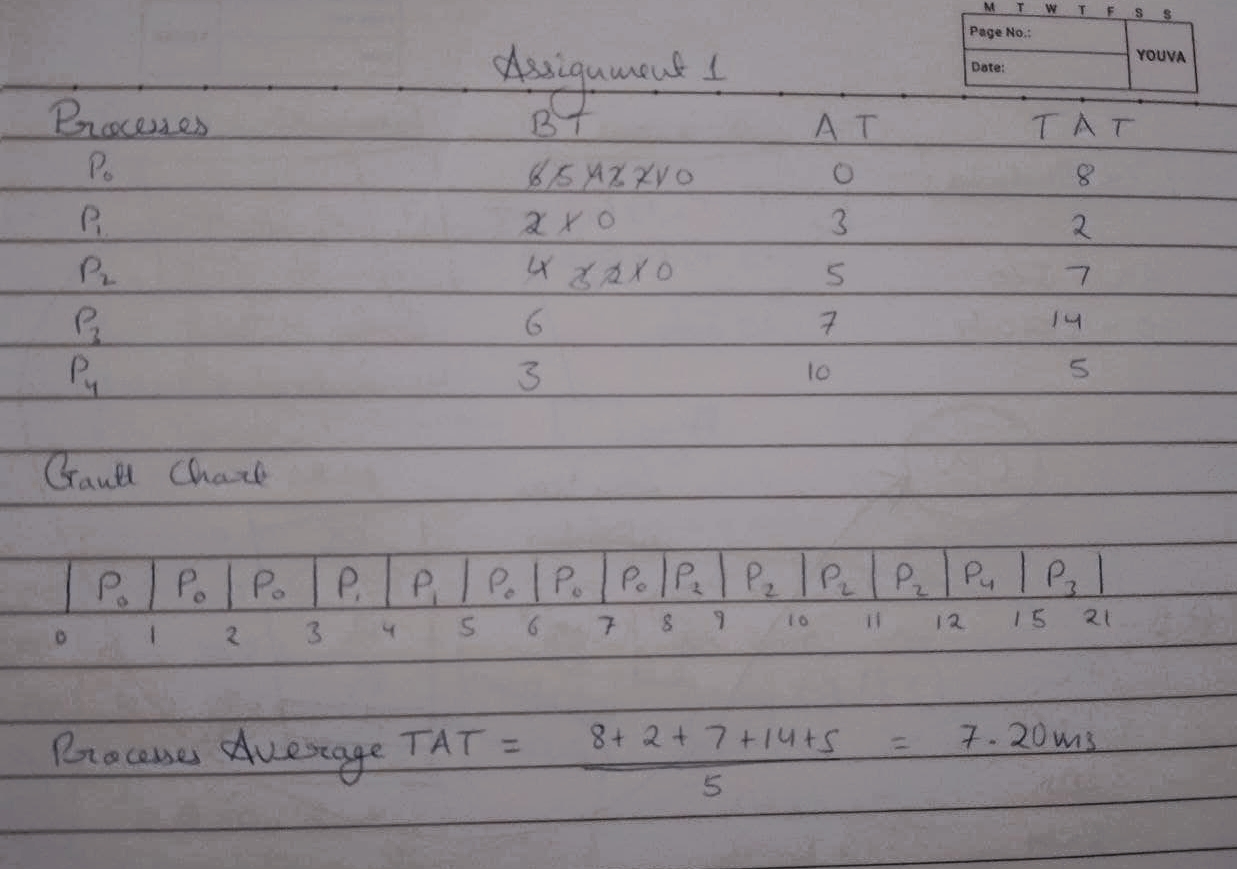 M T W T F S S
Page No.:
YOUVA
Date:
Assignment 1
Processes BT AT TAT
P0 6 5 4 3 2 1 0 0 8
P1 2 1 0 3 2
P2 4 3 2 1 0 5 7
P3 6 7 14
P4 3 10 5
Gantt Chart
| P0 | P0 | P0 | P1 | P1 | P0 | P0 | P0 | P2 | P2 | P2 | P2 | P4 | P3 |
0 1 2 3 4 5 6 7 8 9 10 11 12 15 21
Processes Average TAT = 8+2+7+14+5 = 7.20ms
5